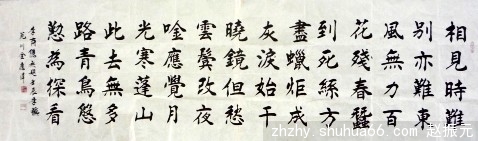 相見時難
別亦難東
風無力百
花殘春蠶
到死絲方
盡蠟炬成
灰淚始干
曉鏡但愁
雲鬢改夜
吟應覺月
光寒蓬山
此去無多
路青鳥慇
懃為探看
李商隱無題
zhzhy.shuhua66.com 赵振元